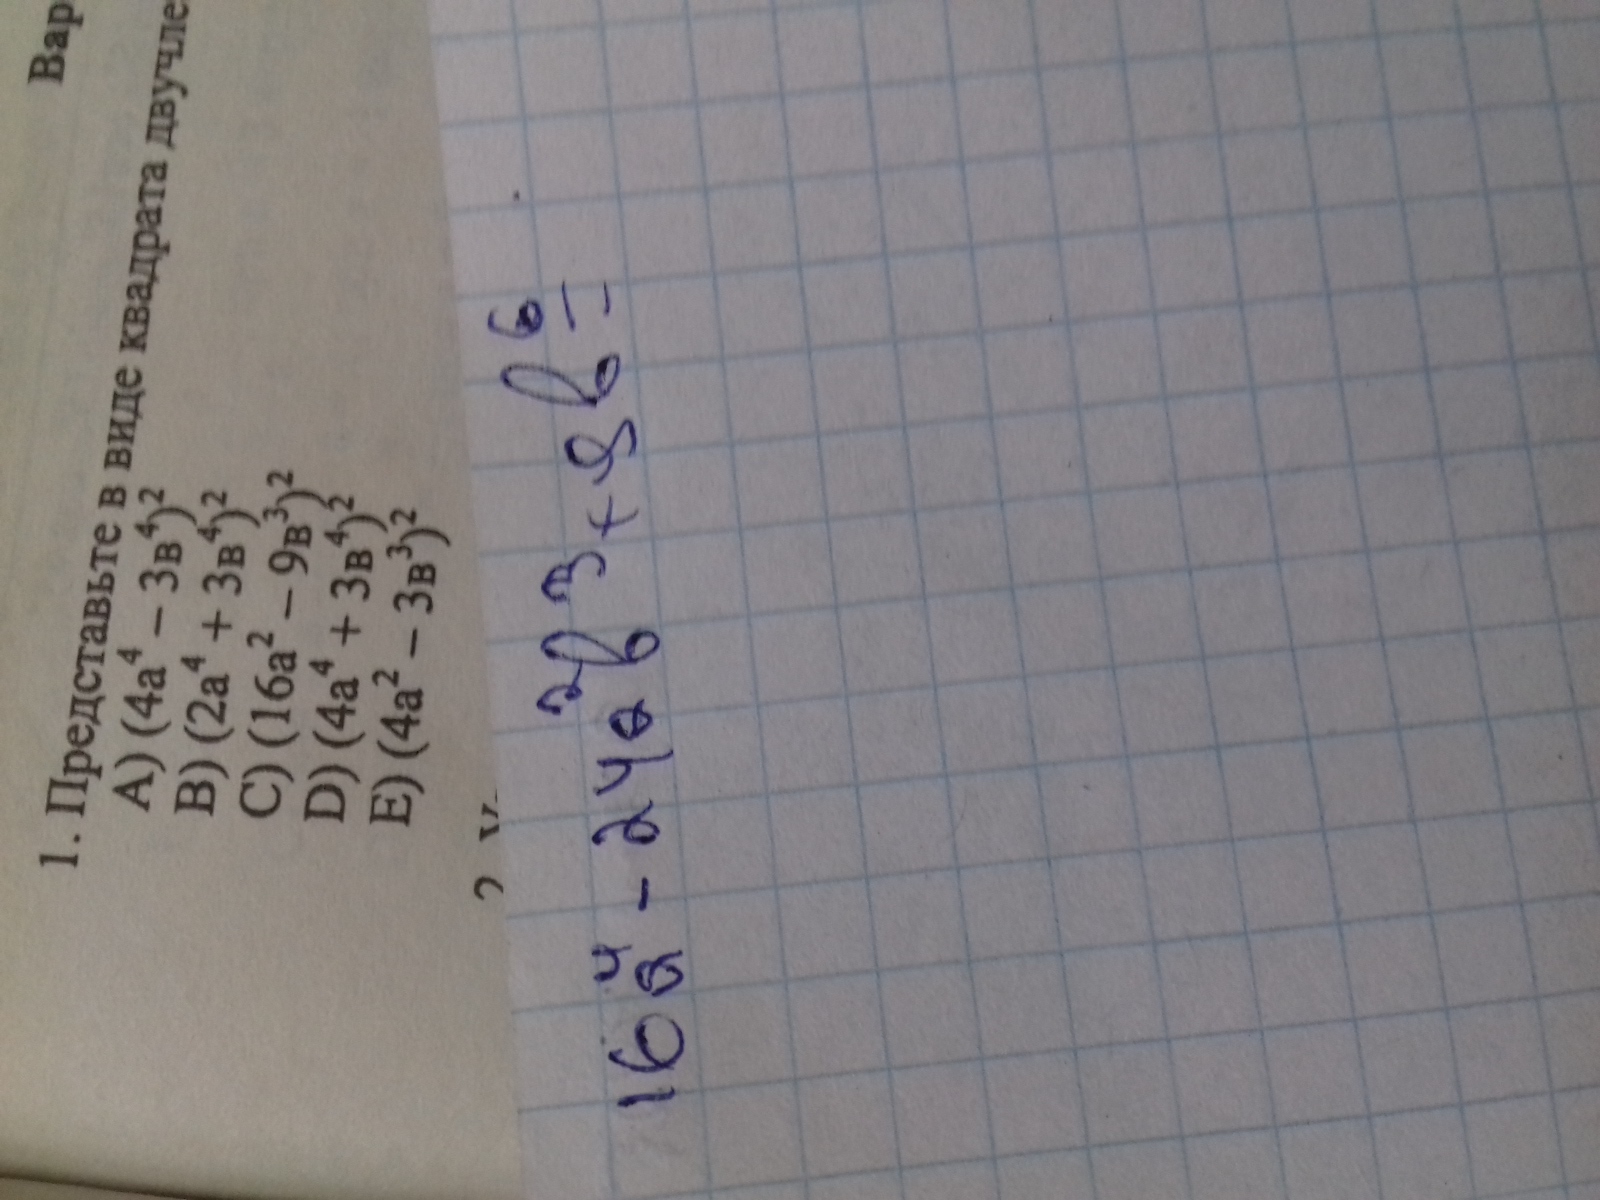 Вар
1. Представьте в виде квадрата двучле
A) (4a⁴ – 3в⁴)²
B) (2a⁴ + 3в⁴)²
C) (16a² – 9в³)²
D) (4a⁴ + 3в⁴)²
E) (4a² – 3в³)²
16a⁴ - 24a²b³ + 9b⁶ =